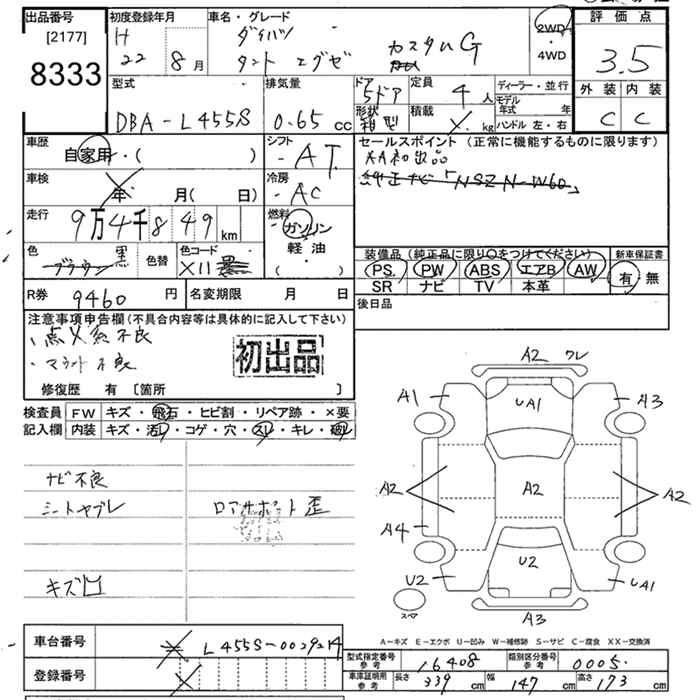 出品番号
[2177]
8333
初度登録年月
H
22 8月
車名・グレード
ダイハツ
タント エグゼ カスタムG
2WD
・
4WD
評価点
3.5
外装 内装
C C
型式
DBA-L455S
排気量
0.65 cc
ドア
形状
5ドア
箱型
定員
4人
積載
kg
ディーラー・並行
モデル
年式 年
ハンドル 左・右
車歴
自家用・( )
車検
年 月( 日)
走行
9万4千849 km
色
ブラウン 黒
色替
色コード
X11
シフト
AT
冷房
AC
燃料
ガソリン
軽・油
( )
セールスポイント (正常に機能するものに限ります)
AA初出品
純正ナビ「NSZN-W60」
装備品 (純正品に限り○をつけてください)
PS. PW ABS エアB AW
SR ナビ TV 本革
新車保証書
有・無
R券 9460 円
名変期限 月 日
後日品
注意事項申告欄(不具合内容等は具体的に記入して下さい)
・点火系不良
・マフラー不良
初出品
修復歴 有 [箇所 ]
検査員
記入欄
FW キズ・飛石・ヒビ割・リペア跡・×要
内装 キズ・汚レ・コゲ・穴・スレ・キレ・破レ
ナビ不良
シートヤブレ
ロアサポート歪
キズ凹
A2 ワレ
A1
UA1
A3
A2
A2
A2
A4
U2
U2
UA1
スマ
A3
A-キズ E-エクボ U-凹み W-補修跡 S-サビ C-腐食 XX-交換済
車台番号
L455S-0029214
登録番号
型式指定番号
参考
16408
類別区分番号
参考
0005
車庫証明用
参考
長さ 339 cm
幅 147 cm
高さ 173 cm